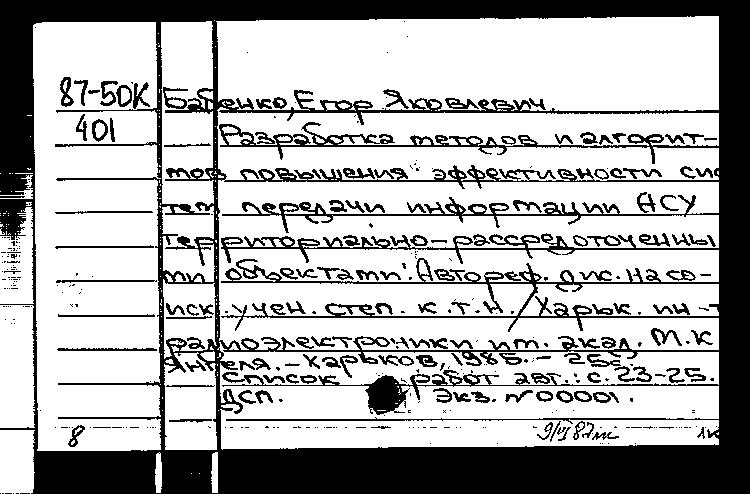 87-5ДК Бабенко, Егор Яковлевич.
401 Разработка методов и алгорит-
мов повышения эффективности сис
тем передачи информации АСУ
территориально-рассредоточенны
ми объектами: Автореф. дис. на со-
иск. учен. степ. к.т.н. / Харьк. ин-т
радиоэлектроники им. акад. М.К
Янгеля. - Харьков, 1985. - 25с
Список работ авт.: с. 23-25.
ДСП. Экз. № 00001.
8 9/VI 87